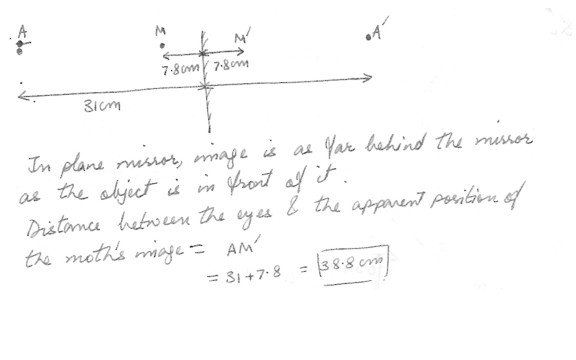 A M M' A'
7.8cm 7.8cm
31cm
In plane mirror, image is as far behind the mirror
as the object is in front of it.
Distance between the eyes & the apparent position of
the moth's image = AM'
= 31+7.8 = 38.8 cm